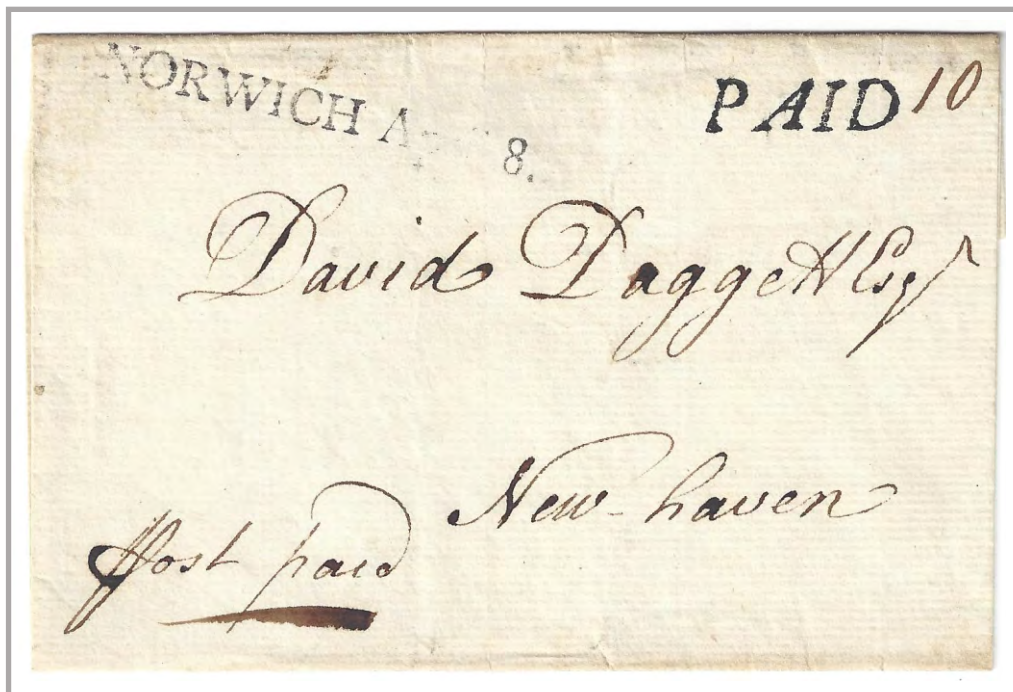 NORWICH 8.
PAID 10
David Daggett Esqr
New-haven
Post paid